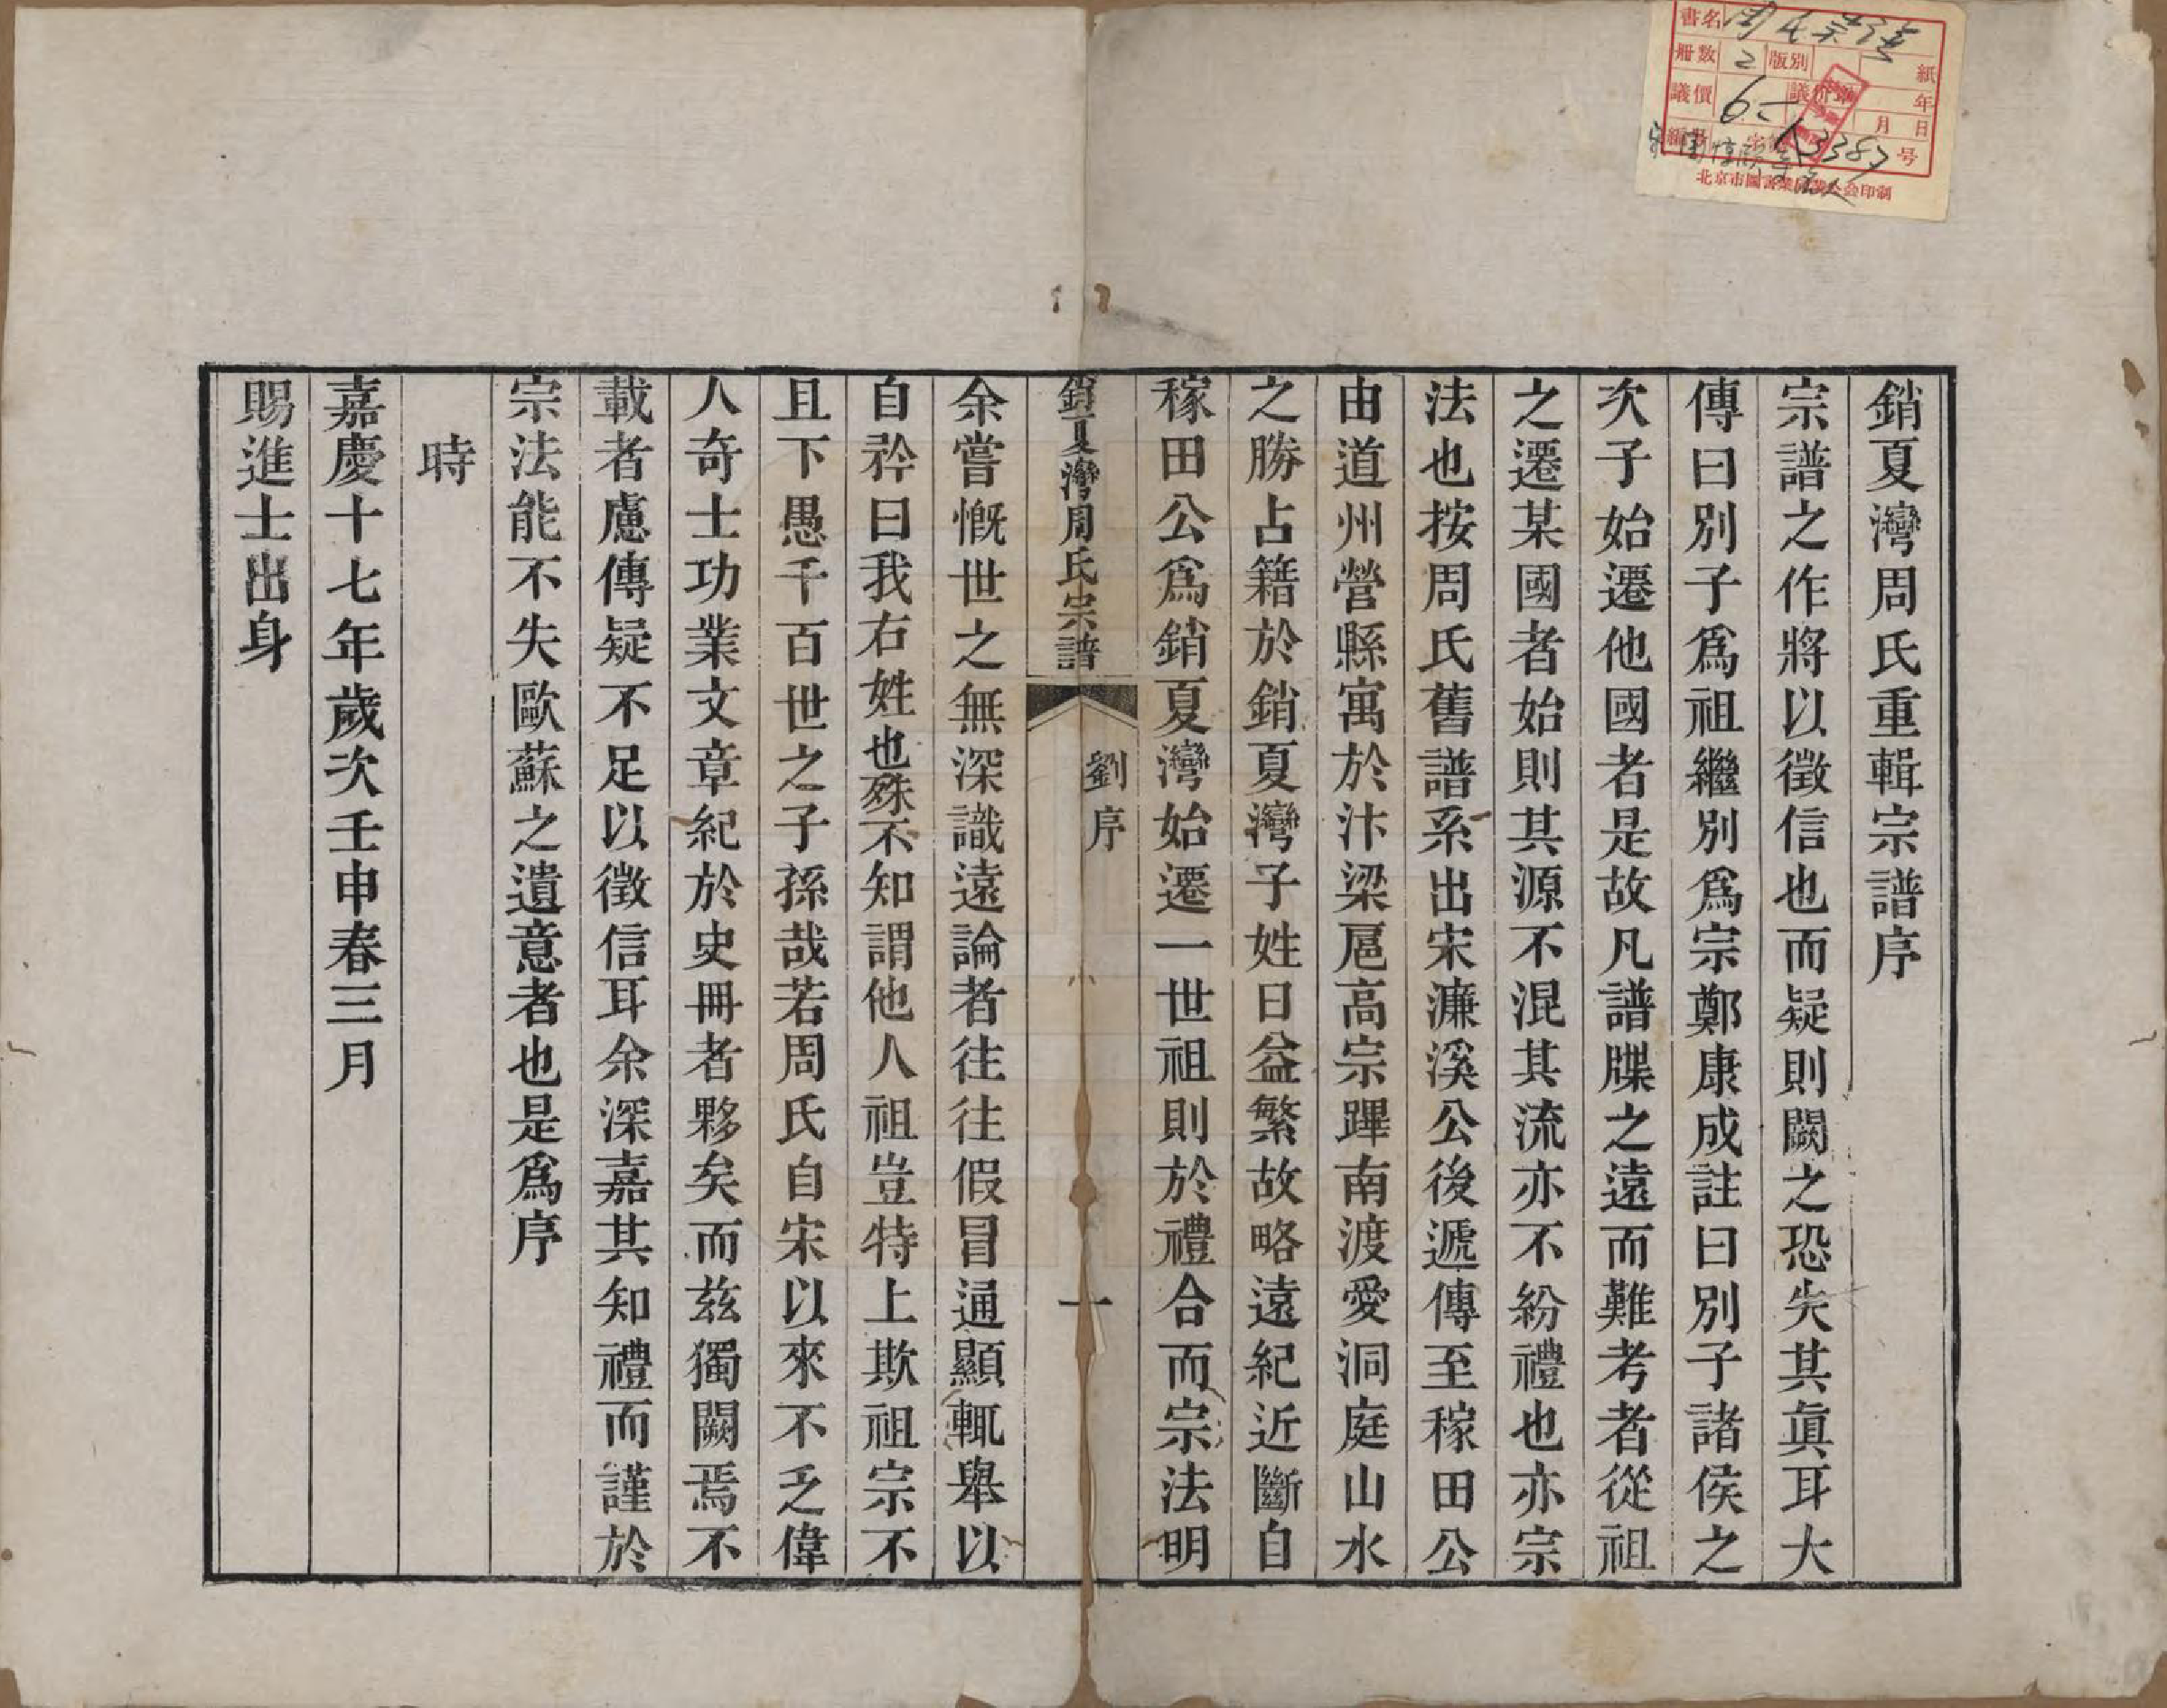 銷夏灣周氏重輯宗譜序
宗譜之作將以徵信也而疑則闕之恐失其眞耳大
傳曰別子爲祖繼別爲宗鄭康成註曰別子諸侯之
次子始遷他國者是故凡譜牒之遠而難考者從祖
之遷某國者始則其源不混其流亦不紛禮也亦宗
法也按周氏舊譜系出宋濂溪公後遞傳至稼田公
由道州營縣寓於汴梁扈高宗蹕南渡愛洞庭山水
之勝占籍於銷夏灣子姓日益繁故略遠紀近斷自
稼田公爲銷夏灣始遷一世祖則於禮合而宗法明
銷夏灣周氏宗譜
劉序
一
余嘗慨世之無深識遠論者往往假冒通顯輒舉以
自矜曰我右姓也殊不知謂他人祖豈特上欺祖宗不
且下愚千百世之子孫哉若周氏自宋以來不乏偉
人奇士功業文章紀於史冊者夥矣而茲獨闕焉不
載者慮傳疑不足以徵信耳余深嘉其知禮而謹於
宗法能不失歐蘇之遺意者也是爲序
時
嘉慶十七年歲次壬申春三月
賜進士出身
書名 周氏宗譜
冊数 2 版別 紙
議價 6 年
月 日
3387 号